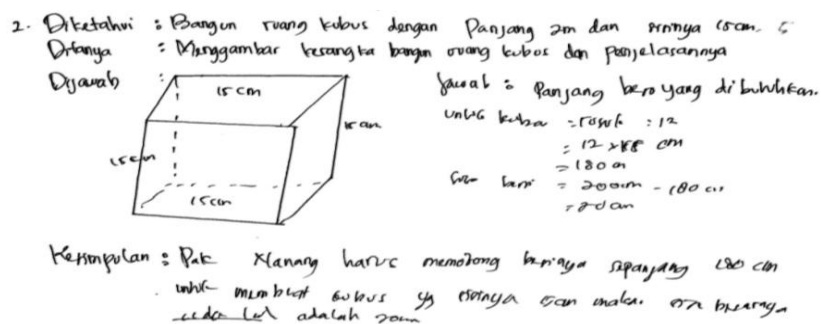 2. Diketahui : Bangun ruang kubus dengan Panjang 2m dan sisinya 15cm.
Ditanya : Menggambar kerangka bangun ruang kubus dan penjelasannya
Dijawab :
15 cm
15 cm
15 cm
15 cm
Jawab : Panjang besi yang dibutuhkan.
untuk kubus = rusuk : 12
= 12 × cm
= 180 cm
besi = 200cm - 180 cm
= 20 cm
Kesimpulan : Pak Nanang harus memotong besinya sepanjang 180 cm
untuk membuat kubus yg sisinya 15cm maka. besarnya
adalah 20cm